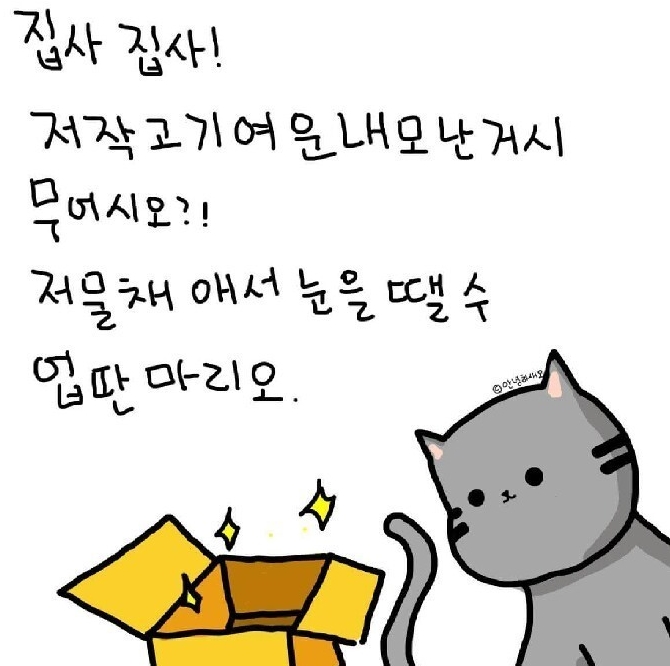 집사 집사!
저작고기여운내모난거시
무어시오?!
저물채 애서 눈을 땔 수
업딴 마리오.
©안녕하새오